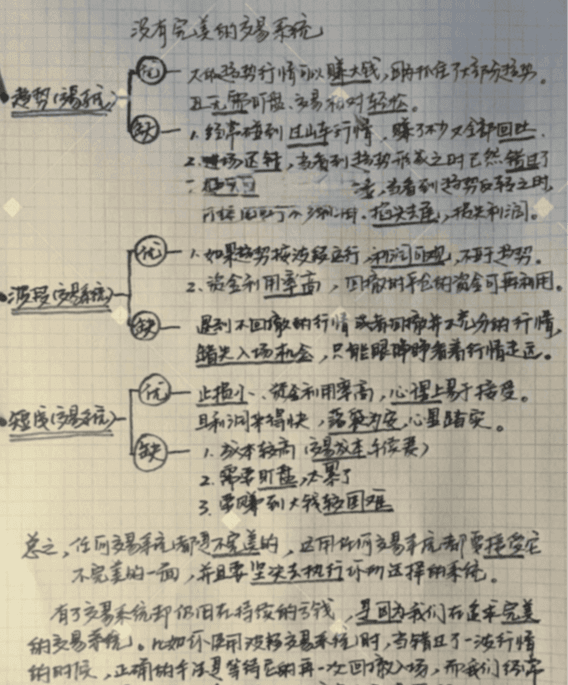 没有完美的交易系统
趋势(交易系统)
优
大级趋势行情可以赚大钱,因为抓住了大部分趋势。
且无需盯盘、交易相对轻松。
缺
1. 经常碰到过山车行情,赚了不少又全部回吐、
2. 进场迟钝,当看到趋势形成之时已然错过了
当看到趋势反转之时,
损失利润。
波段(交易系统)
优
1. 如果趋势按波段运行,利润可观,不亚于趋势。
2、资金利用率高,回撤时平仓的资金可再利用。
缺
遇到不回撤的行情或者回撤并不充分的行情,
错失入场机会,只能眼睁睁看着行情走远。
短线(交易系统)
优
止损小、资金利用率高,心理上易于接受。
且利润来得快,落袋为安,心里踏实。
缺
1. 成本较高(交易成本手续费)
2. 需要盯盘,太累了
3. 要赚到大钱较困难
总之,任何交易系统都是不完美的,运用任何交易系统都要接受它
不完美的一面,并且要坚决去执行你所选择的系统。
有了交易系统却仍旧在持续的亏钱,是因为我们在追求完美
的交易系统。比如你使用波段交易系统时,当错过了一波行情
的时候,正确的手法是等待它的再一次回撤入场,而我们经常